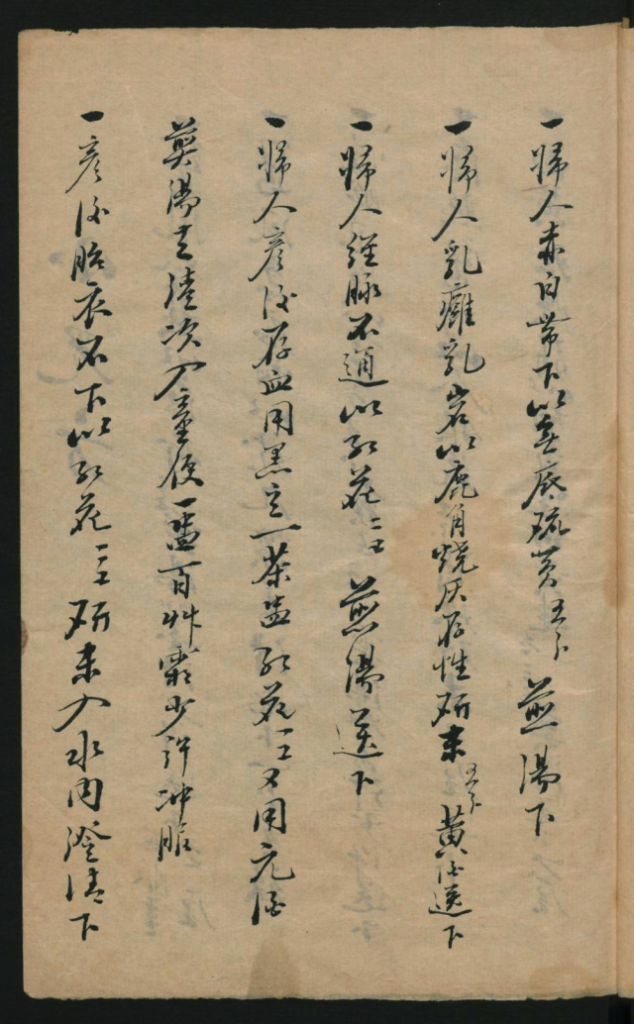 一婦人赤白帶下以無底硫黃五分 煎湯下
一婦人乳癰乳岩以鹿角燒灰存性研末五分黃酒送下
一婦人經脉不通以紅花二 煎湯送下
一婦人产後存血用黑豆一茶盅紅花二 又用元酒
煎湯去渣次入童便一盅百艸霜少許冲服
一产後胎衣不下以紅花二 研末入水内澄清下